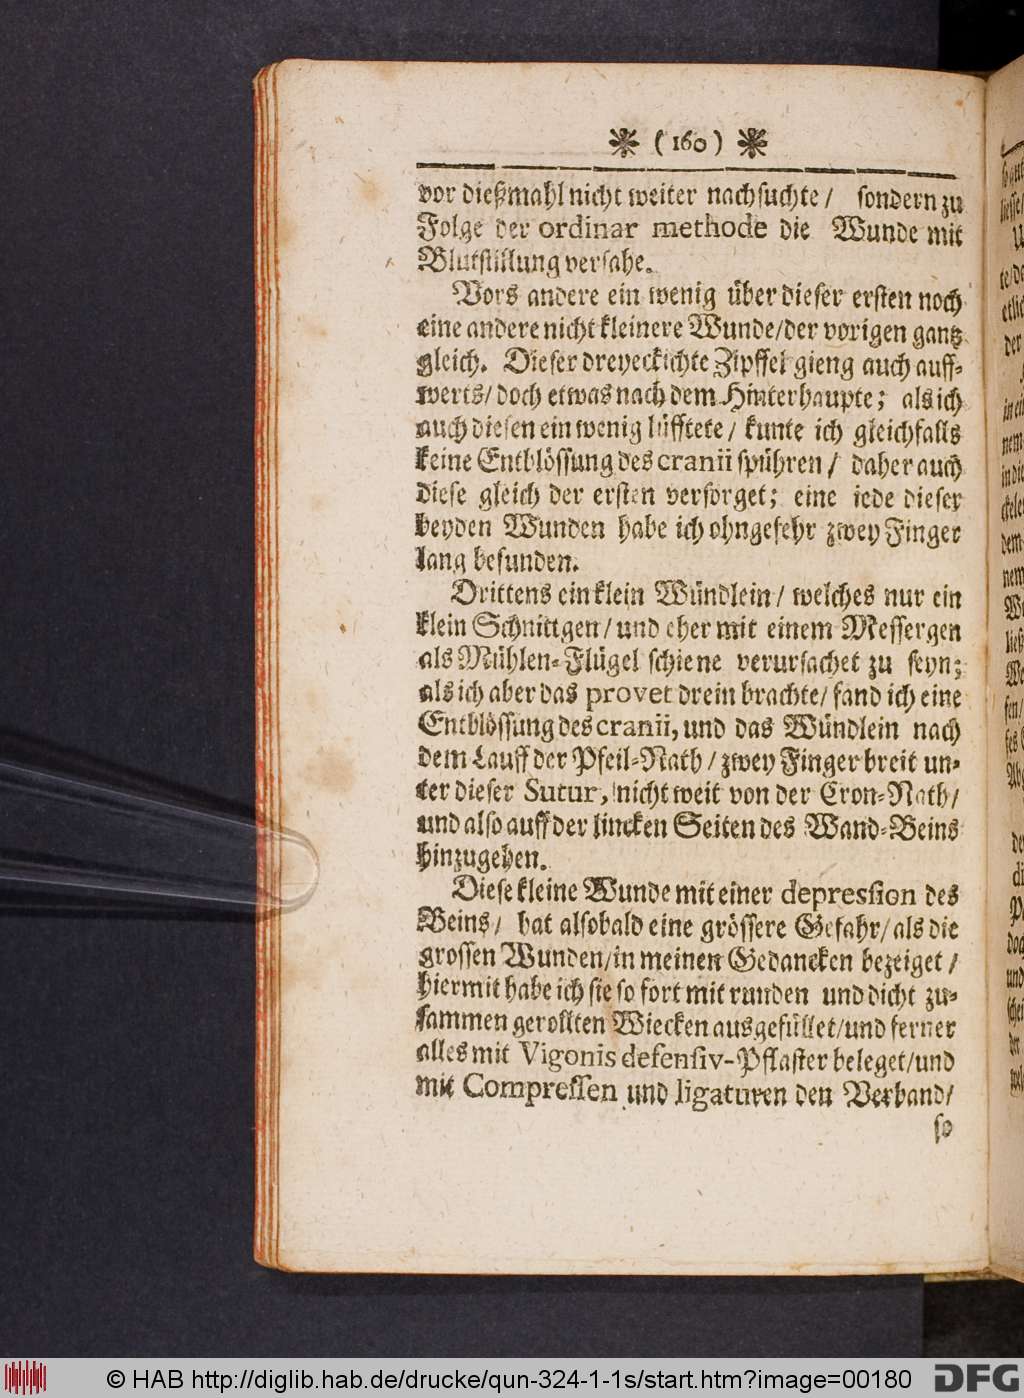 ( 160 )
vor dießmahl nicht weiter nachsuchte / sondern zu
Folge der ordinar methode die Wunde mit
Blutstillung versahe.
Vors andere ein wenig über dieser ersten noch
eine andere nicht kleinere Wunde/der vorigen gantz
gleich. Dieser dreyeckichte Zipffel gieng auch auff-
werts/ doch etwas nach dem Hinterhaupte; als ich
auch diesen ein wenig lüfftete / kunte ich gleichfalls
keine Entblössung des cranii spühren / daher auch
diese gleich der ersten versorget; eine iede dieser
beyden Wunden habe ich ohngefehr zwey Finger
lang befunden.
Drittens ein klein Wündlein / welches nur ein
klein Schnittgen / und eher mit einem Messergen
als Mühlen-Flügel schiene verursachet zu seyn;
als ich aber das provet drein brachte/ fand ich eine
Entblössung des cranii, und das Wündlein nach
dem Lauff der Pfeil-Nath / zwey Finger breit un-
ter dieser Sutur, nicht weit von der Cron-Nath/
und also auff der lincken Seiten des Wand-Beins
hinzugehen.
Diese kleine Wunde mit einer depression des
Beins / hat alsobald eine grössere Gefahr/ als die
grossen Wunden/in meinen Gedancken bezeiget /
hiermit habe ich sie so fort mit runden und dicht zu-
sammen gerollten Wiecken ausgefüllet/und ferner
alles mit Vigonis defensiv-Pflaster beleget/und
mit Compressen und ligaturen den Verband/
so
© HAB http://diglib.hab.de/drucke/qun-324-1-1s/start.htm?image=00180
DFG